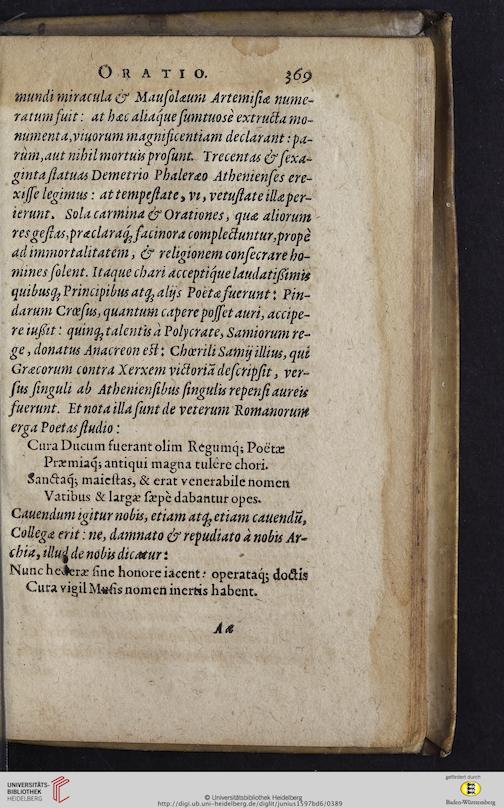 ORATIO. 369
mundi miracula & Mausolæum Artemisiæ nume-
ratum fuit: at hæc aliaq́ue sumtuosè extructa mo-
numenta, viuorum magnificentiam declarant: pa-
rùm, aut nihil mortuis prosunt. Trecentas & sexa-
ginta statuas Demetrio Phaleræo Athenienses ere-
xisse legimus: at tempestate, vi, vetustate illæ per-
ierunt. Sola carmina & Orationes, quæ aliorum
res gestas, præclaraq́; facinora complectuntur, propè
ad immortalitatem, & religionem consecrare ho-
mines solent. Itaque chari acceptiq́ue laudatißimis
quibusq; Principibus atq; alijs Poëtæ fuerunt: Pin-
darum Crœsus, quantum capere posset auri, accipe-
re iußit: quinq; talentis à Polycrate, Samiorum re-
ge, donatus Anacreon est: Chœrili Samij illius, qui
Græcorum contra Xerxem victoriã descripsit, ver-
sus singuli ab Atheniensibus singulis repensi aureis
fuerunt. Et nota illa sunt de veterum Romanorum
erga Poetas studio:
Cura Ducum fuerant olim Regumq́; Poëtæ
Præmiaq́; antiqui magna tulêre chori.
Sanctaq́; maiestas, & erat venerabile nomen
Vatibus & largæ sæpè dabantur opes.
Cauendum igitur nobis, etiam atq; etiam cauendũ,
Collegæ erit: ne, damnato & repudiato à nobis Ar-
chia, illud de nobis dicatur:
Nunc hederæ sine honore iacent: operataq́; doctis
Cura vigil Musis nomen inertis habent.
Aa
UNIVERSITÄTS-
BIBLIOTHEK
HEIDELBERG
© Universitätsbibliothek Heidelberg
http://digi.ub.uni-heidelberg.de/diglit/junius1597bd6/0389
gefördert durch
Baden-Württemberg